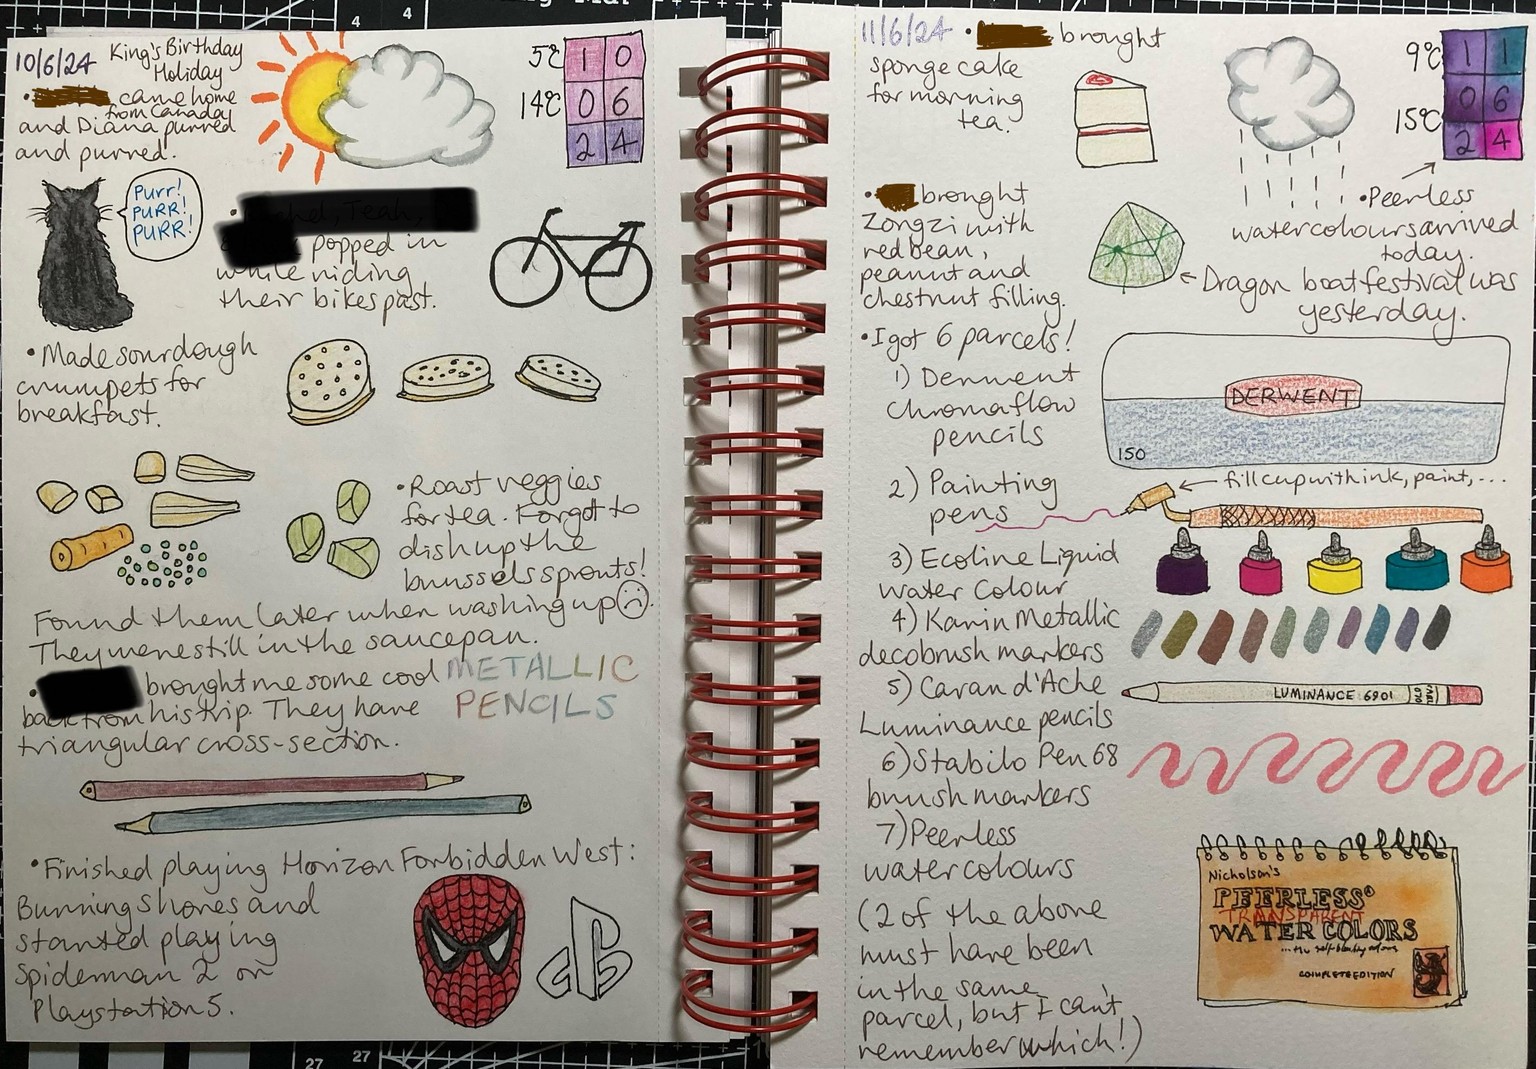 4
4
10/6/24 King's Birthday
Holiday
5℃
1 0
14℃
0 6
2 4
• came home
from Canada
and Diana purred
and purred.
Purr!
PURR!
PURR!
•
popped in
while riding
their bikes past.
• Made sourdough
crumpets for
breakfast.
• Roast veggies
for tea. Forgot to
dish up the
brussels sprouts!
Found them later when washing up
They were still in the saucepan.
• brought me some cool METALLIC
PENCILS
back from his trip. They have
triangular cross-section.
• Finished playing Horizon Forbidden West:
Burning Shores and
started playing
Spiderman 2 on
Playstation 5.
27
27
11/6/24 • brought
sponge cake
for morning
tea.
9℃
1 1
0 6
15℃
2 4
• Peerless
watercolours arrived
today.
• brought
Zongzi with
red bean,
peanut and
chestnut filling.
Dragon boat festival was
yesterday.
• I got 6 parcels!
1) Derwent
Chromaflow
pencils
DERWENT
150
2) Painting
pens
fill cup with ink, paint, ...
3) Ecoline Liquid
Water Colour
4) Karin Metallic
decobrush markers
5) Caran d'Ache
Luminance pencils
LUMINANCE 6901
6) Stabilo Pen 68
brush markers
7) Peerless
watercolours
(2 of the above
must have been
in the same
parcel, but I can't
remember which!)
Nicholson's
PEERLESS®
TRANSPARENT
WATER COLORS
COMPLETE EDITION